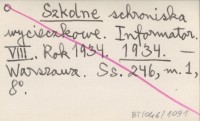 Szkolne schroniska
wycieczkowe. Informator.
VIII. Rok 1934. 1934. —
Warszawa. Ss. 246, m. 1,
8°.
BT/046/1091